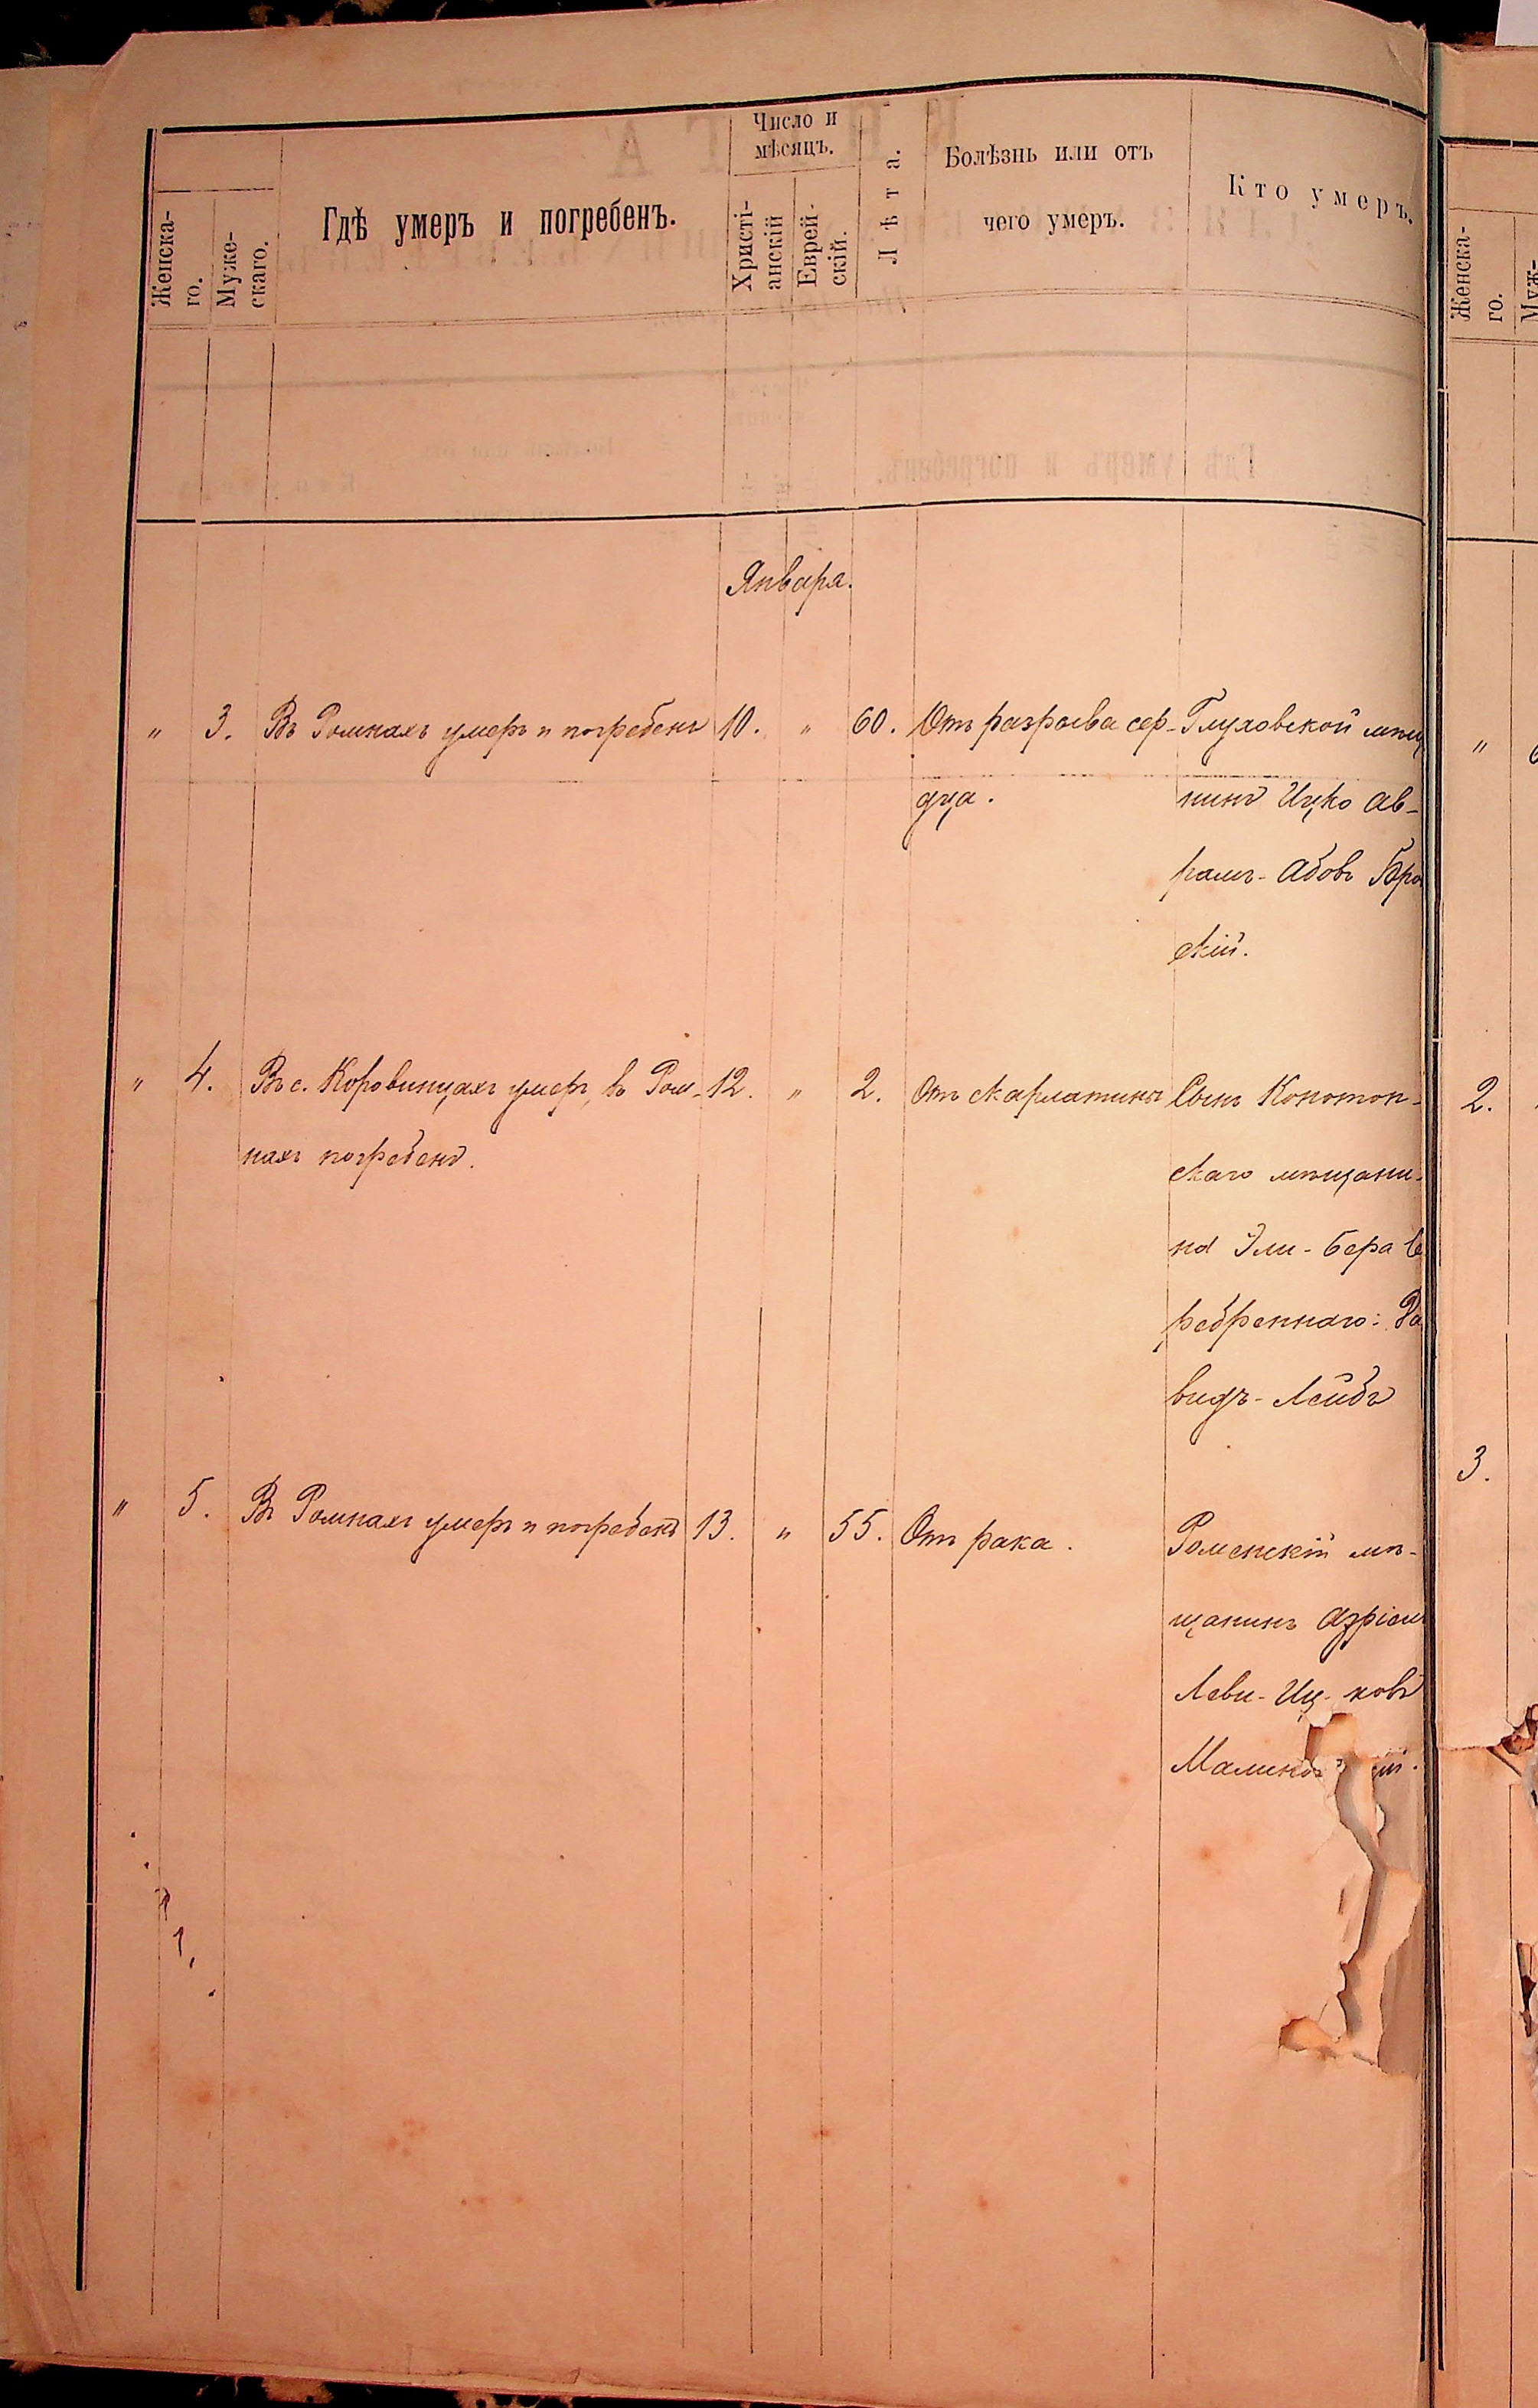 Женска-
го.
Муже-
скаго.
Гдѣ умеръ и погребенъ.
Число и
мѣсяцъ.
Христі-
анскій
Еврей-
скій.
Лѣта.
Болѣзнь или отъ
чего умеръ.
Кто умеръ.
Января.
" 3. Въ Ромнахъ умеръ и погребенъ 10. " 60. Отъ разрыва сер- Глуховской мѣщ
дца. нинъ Ицко Ав-
рамъ-Абовъ Бро
скій.
" 4. Въ с. Коровинцахъ умеръ, въ Ром- 12. " 2. Отъ скарлатины Сынъ Конотоп-
нахъ погребенъ. скаго мѣщани-
на Эли-Бера Се
ребреннаго: Да
видъ-Лейбъ
" 5. Въ Ромнахъ умеръ и погребенъ 13. " 55. Отъ рака. Роменскій мѣ-
щанинъ Азріель
Леви-Иц-ковъ
Малино ій.
Женска-
го.
Муж-
"
2.
3.